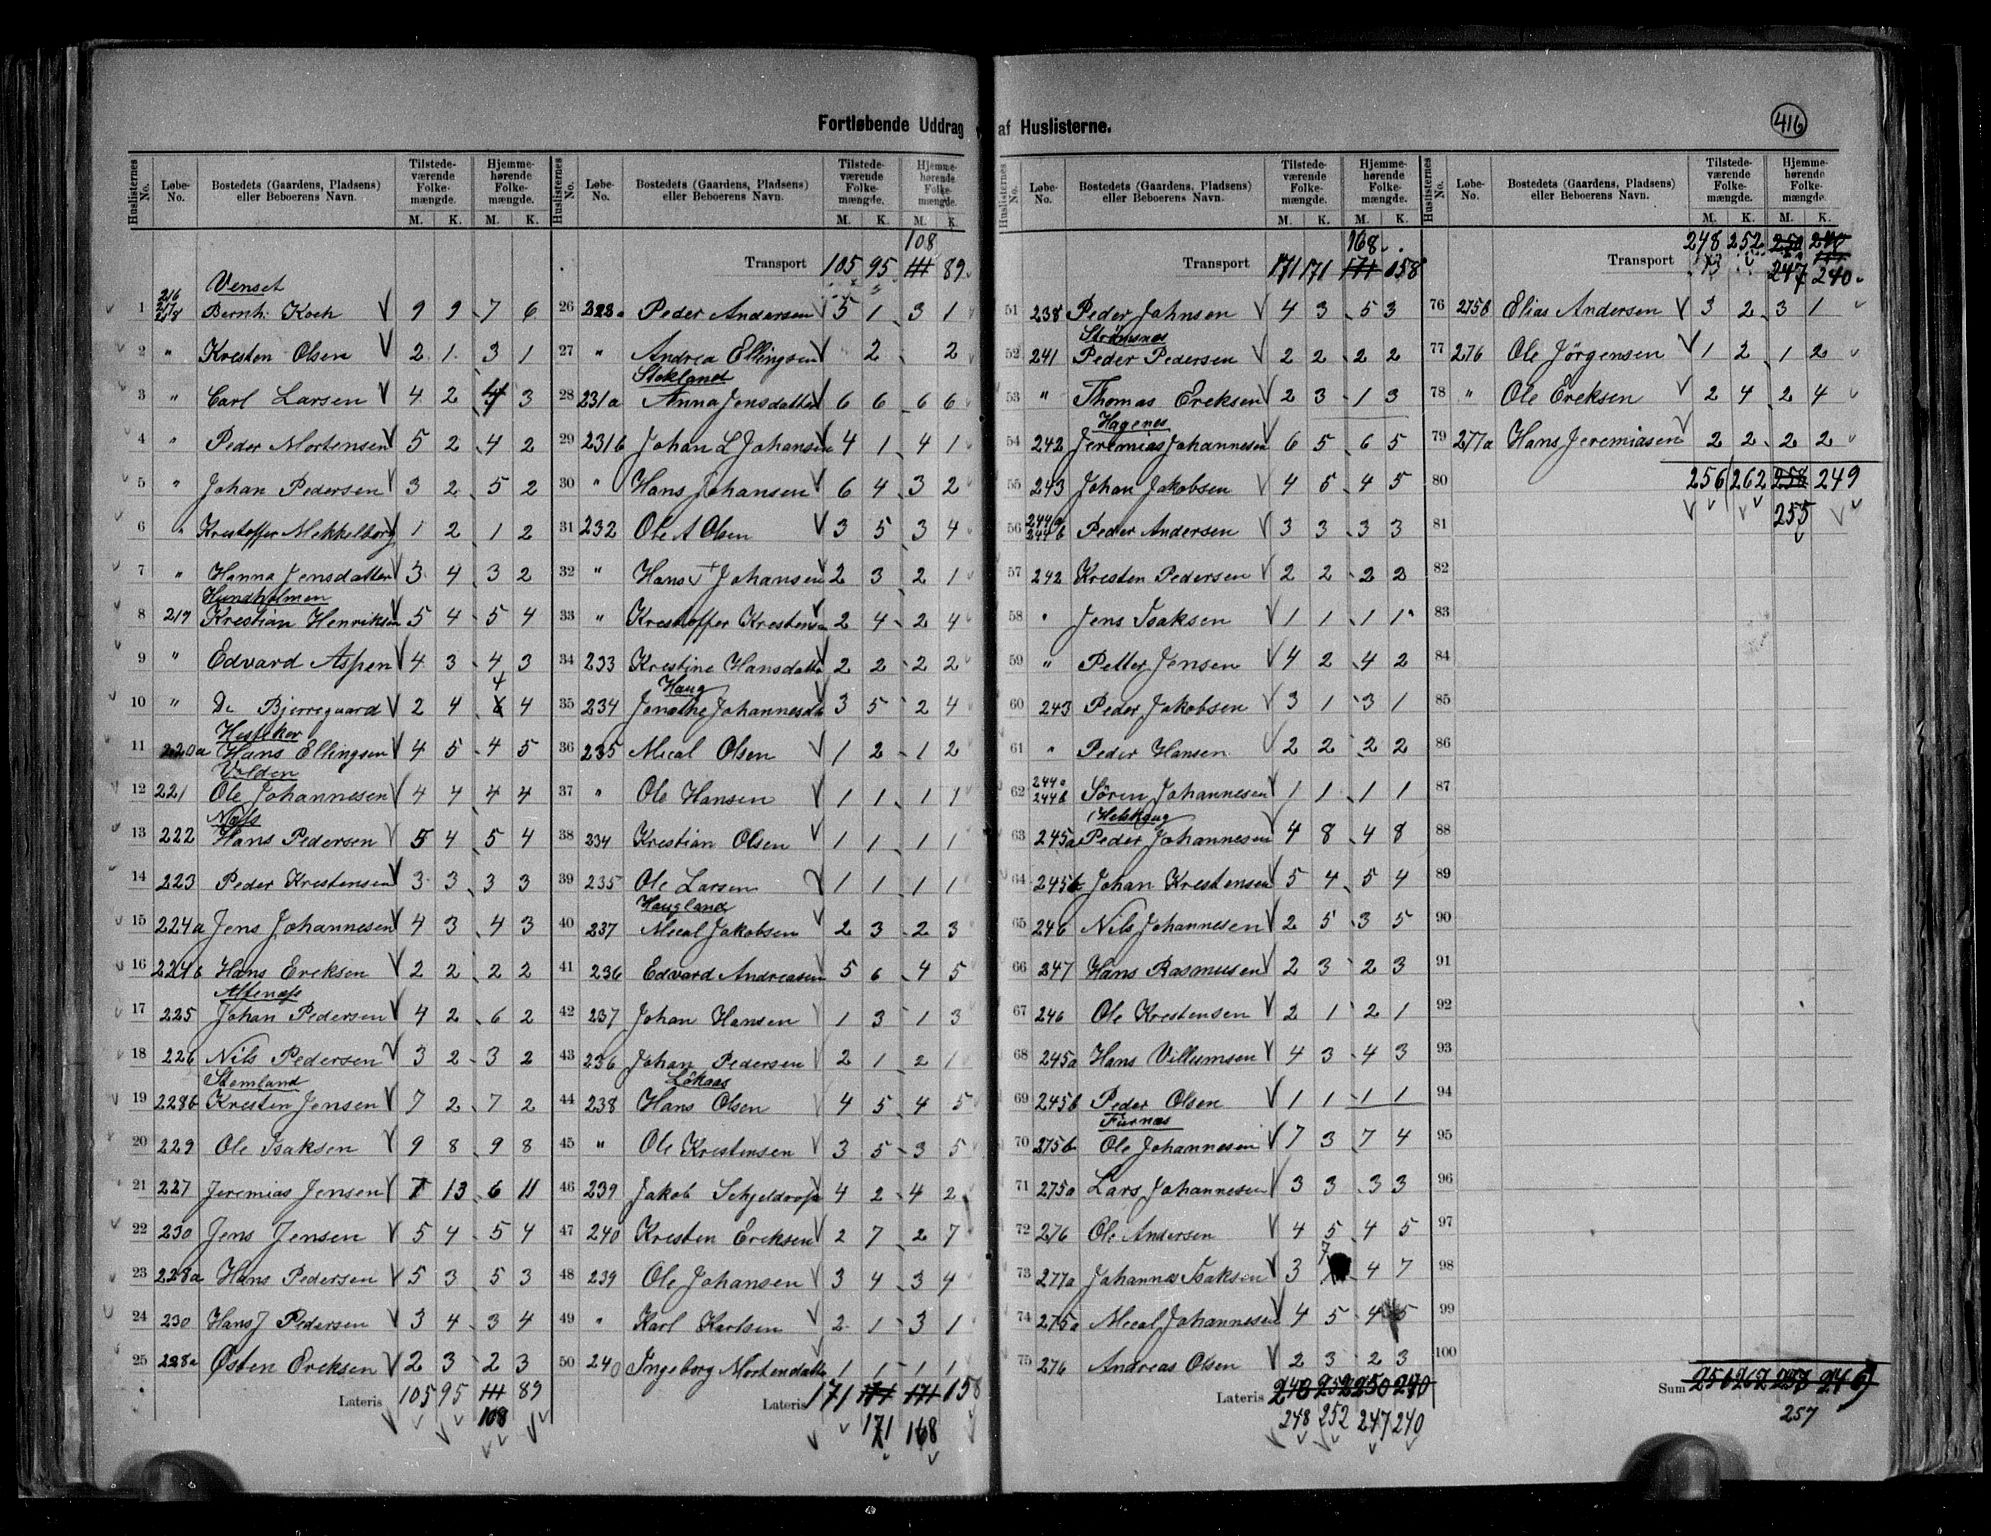 416
Fortløbende Uddrag af Huslisterne.
Huslisternes No. Løbe-No. Bostedets (Gaardens, Pladsens) eller Beboerens Navn. Tilstedeværende Folkemængde. M. K. Hjemmehørende Folkemængde. M. K.
Venset
1 216 218 Bernh. Koch 9 9 7 6
2 " Kresten Olsen 2 1 3 1
3 " Carl Larsen 4 2 3
4 " Peder Mortensen 5 2 4 2
5 " Johan Pedersen 3 2 5 2
6 " Krestoffer Mekkelborg 1 2 1 2
7 " Hanna Jensdatter 3 4 3 2
Hundholmen
8 217 Krestian Henriksen 5 4 5 4
9 " Edvard Aspen 4 3 4 3
10 " De Bjerregaard 2 4 4 4
Hesteker
11 220a Hans Ellingsen 4 5 4 5
Valden
12 221 Ole Johannesen 4 4 4 4
Næss
13 222 Hans Pedersen 5 4 5 4
14 223 Peder Krestensen 3 3 3 3
15 224a Jens Johannesen 4 3 4 3
16 224b Hans Ereksen 2 2 2 2
Alfenæss
17 225 Johan Pedersen 4 2 6 2
18 226 Nils Pedersen 3 2 3 2
Stemland
19 228b Kresten Jensen 7 2 7 2
20 229 Ole Isaksen 9 8 9 8
21 227 Jeremias Jensen 7 13 6 11
22 230 Jens Jensen 5 4 5 4
23 228a Hans Pedersen 5 3 5 3
24 230 Hans J Pedersen 3 4 3 4
25 228a Østen Ereksen 2 3 2 3
Lateris 105 95 111 89
108
108
Transport 105 95 111 89
26 228a Peder Andersen 5 1 3 1
27 " Andrea Ellingsen 2 2
Stokland
28 231a Anna Jensdatter 6 6 6 6
29 231b Johan L Johansen 4 1 4 1
30 " Hans Johansen 6 4 3 2
31 232 Ole A Olsen 3 5 3 4
32 " Hans J Johansen 2 3 2 1
33 " Krestoffer Krestensen 2 4 2 4
34 233 Krestine Hansdatter 2 2 2 2
Haug
35 234 Jonethe Johannesda 3 5 2 4
36 235 Mical Olsen 1 2 1 2
37 " Ole Hansen 1 1 1 1
38 234 Krestian Olsen 1 1 1 1
39 235 Ole Larsen 1 1 1 1
Haugland
40 237 Mical Jakobsen 2 3 2 3
41 236 Edvard Andreasen 5 6 4 5
42 237 Johan Hansen 1 3 1 3
43 236 Johan Pedersen 2 1 2 1
Lökaas
44 238 Hans Olsen 4 5 4 5
45 " Ole Krestensen 3 5 3 5
46 239 Jakob Schjeldrop 4 2 4 2
47 240 Kresten Ereksen 2 7 2 7
48 239 Ole Johansen 3 4 3 4
49 " Karl Karlsen 2 1 3 1
50 240 Ingeborg Mortensdatter 1 1 1 1
Lateris 171 171 171 158
171 168
168
Transport 171 171 171 158
51 238 Peder Johnsen 4 3 5 3
Strömsnes
52 241 Peder Pedersen 2 2 2 2
53 " Thomas Ereksen 2 3 1 3
Hagenes
54 242 Jeremias Johannesen 6 5 6 5
55 243 Johan Jakobsen 4 5 4 5
56 244a 244b Peder Andersen 3 3 3 3
57 242 Kresten Pedersen 2 2 2 2
58 " Jens Isaksen 1 1 1 1
59 " Petter Jensen 4 2 4 2
60 243 Peder Jakobsen 3 1 3 1
61 " Peder Hansen 2 2 2 2
62 244a 244b Sören Johannesen 1 1 1 1
Helskaug
63 245a Peder Johannesen 4 8 4 8
64 245b Johan Krestensen 5 4 5 4
65 246 Nils Johannesen 2 5 3 5
66 247 Hans Rasmusen 2 3 2 3
67 246 Ole Krestensen 2 1 2 1
68 245a Hans Villumsen 4 3 4 3
69 245b Peder Olsen 1 1 1 1
Furnæs
70 275b Ole Johannesen 7 3 7 4
71 275a Lars Johannesen 3 3 3 3
72 276 Ole Andersen 4 5 4 5
73 277a Johannes Isaksen 3 7 4 7
74 275a Mical Johannesen 4 5 4 5
75 276 Andreas Olsen 2 3 2 3
Lateris 248 252 250 240
248 252 247 240
Transport 248 252 250 240
247 240
76 275b Elias Andersen 3 2 3 1
77 276 Ole Jørgensen 1 2 1 2
78 " Ole Ereksen 2 4 2 4
79 277a Hans Jeremiasen 2 2 2 2
80 256 262 256 249
81 255
82
83
84
85
86
87
88
89
90
91
92
93
94
95
96
97
98
99
100
Sum 256 262 257 249
257